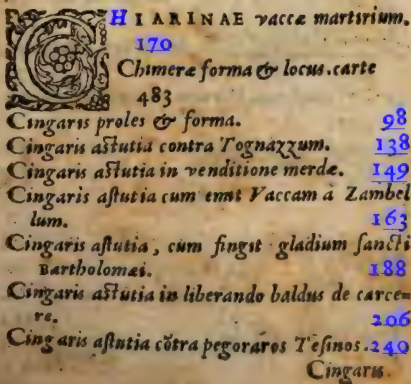 CHIARINAE vaccæ martirium.
170
Chimeræ forma & locus. carte
483
Cingaris proles & forma. 98
Cingaris astutia contra Tognazzum. 138
Cingaris astutia in venditione merdæ. 149
Cingaris astutia cum emit Vaccam à Zambel
lum. 163
Cingaris astutia, cum fingit gladium sancti
Bartholomæi. 188
Cingaris astutia in liberando baldus de carce=
re. 206
Cingaris astutia cōtra pegoraros Tesinos. 240
Cingaris